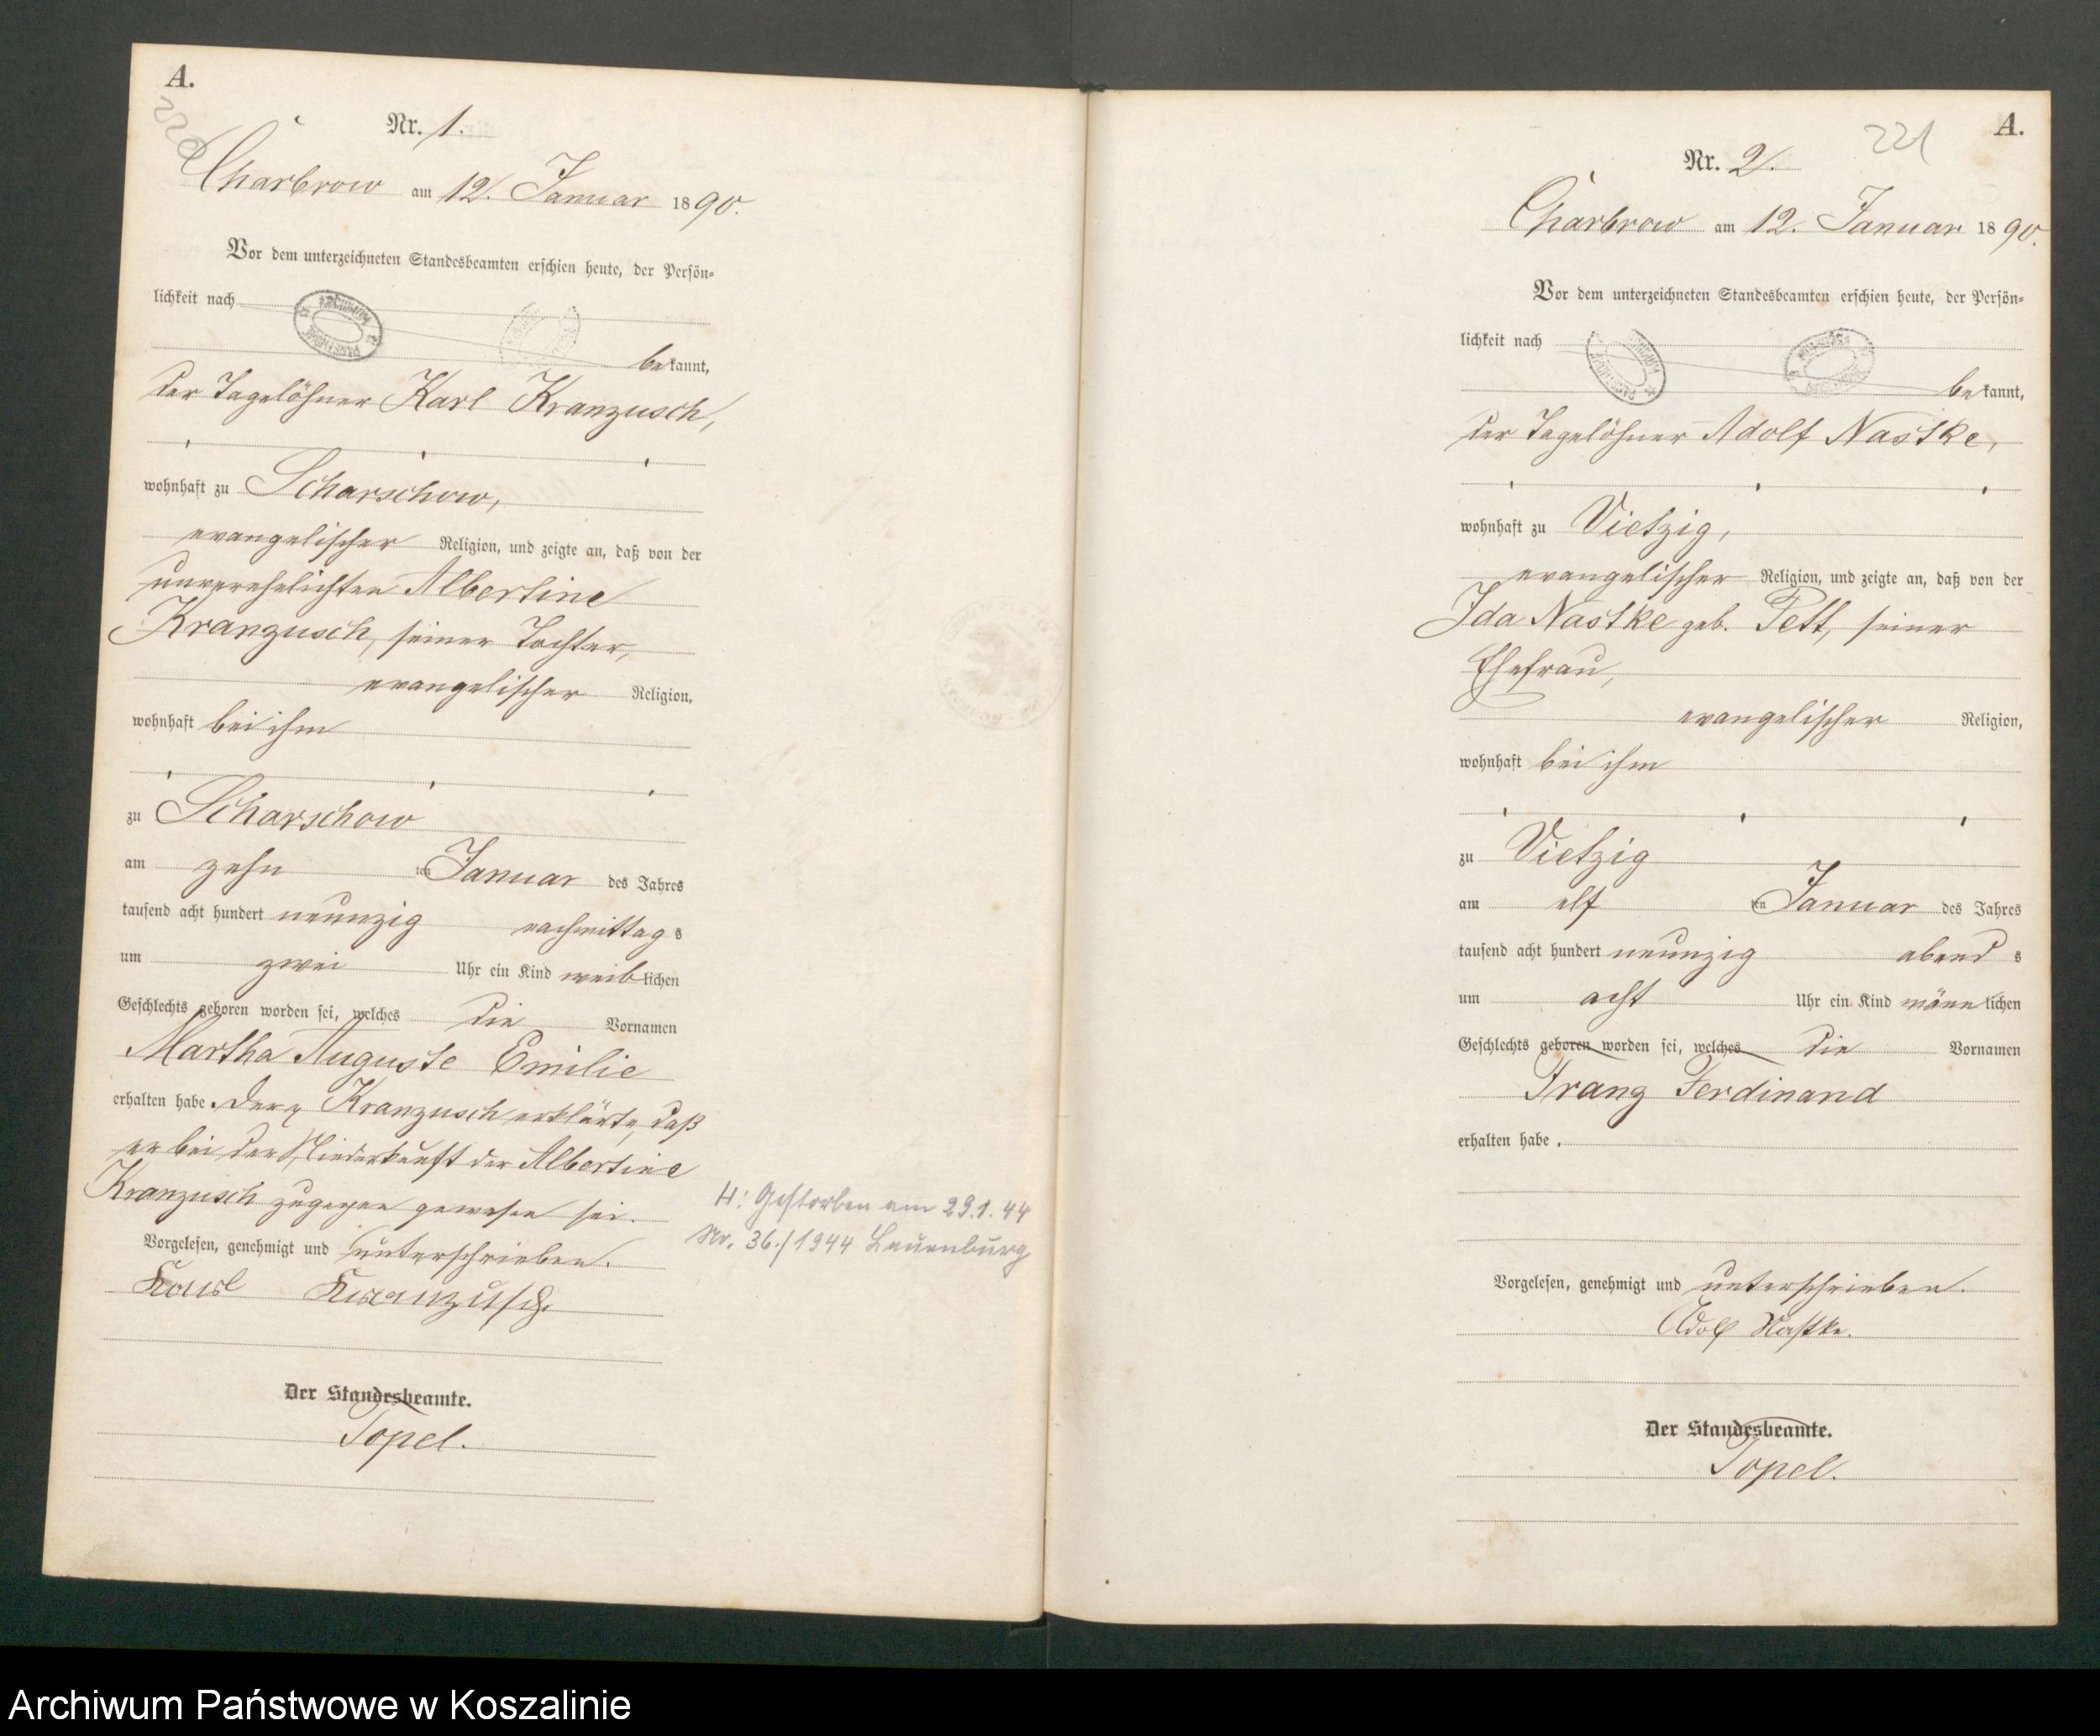 A.
220
Nr. 1.
Charbrow am 12. Januar 1890.
Vor dem unterzeichneten Standesbeamten erschien heute, der Persön-
lichkeit nach
bekannt,
der Tagelöhner Karl Kranzusch,
wohnhaft zu Scharschow,
evangelischer Religion, und zeigte an, daß von der
unverehelichten Albertine
Kranzusch, seiner Tochter,
evangelischer Religion,
wohnhaft bei ihm
zu Scharschow
am zehn ten Januar des Jahres
tausend acht hundert neunzig nachmittags
um zwei Uhr ein Kind weiblichen
Geschlechts geboren worden sei, welches die Vornamen
Martha Auguste Emilie
erhalten habe. Der Kranzusch erklärte, daß
er bei der Niederkunft der Albertine
Kranzusch zugegen gewesen sei.
Vorgelesen, genehmigt und unterschrieben.
Karl Kranzusch.
Der Standesbeamte.
Topel.
H: Gestorben am 29.1.44
Nr. 36./1944 Lauenburg
A.
221
Nr. 2.
Charbrow am 12. Januar 1890.
Vor dem unterzeichneten Standesbeamten erschien heute, der Persön-
lichkeit nach
bekannt,
der Tagelöhner Adolf Nastke,
wohnhaft zu Vietzig,
evangelischer Religion, und zeigte an, daß von der
Ida Nastke geb. Pett, seiner
Ehefrau,
evangelischer Religion,
wohnhaft bei ihm
zu Vietzig
am elf ten Januar des Jahres
tausend acht hundert neunzig abends
um acht Uhr ein Kind männlichen
Geschlechts geboren worden sei, welches die Vornamen
Franz Ferdinand
erhalten habe.
Vorgelesen, genehmigt und unterschrieben.
Adolf Nastke.
Der Standesbeamte.
Topel.
Archiwum Państwowe w Koszalinie